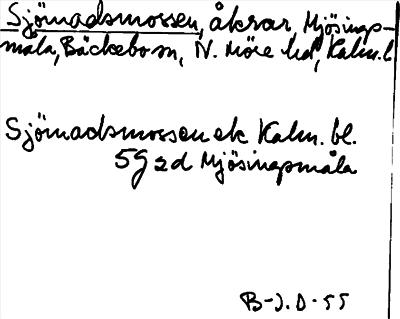 Sjömadsmossen, åkrar, Mjösings-
måla, Bäckebo sn, N. Möre hd, Kalm. l
Sjömadsmossen ek Kalm. bl.
5G 2d Mjösingsmåla
B-J.D-55